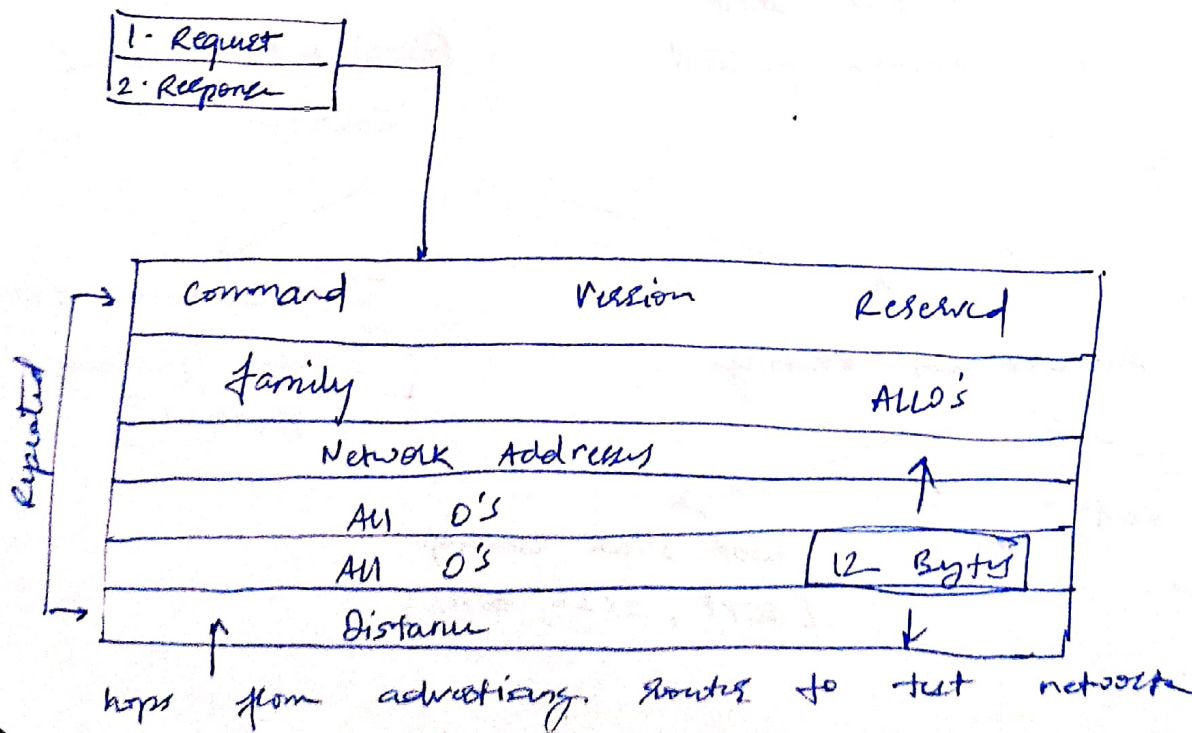 1. Request
2. Response
Command Version Reserved
family ALL0's
Network Addresses
All 0's
All 0's 12 Bytes
Distance
Repeated
hops from advertising router to that network